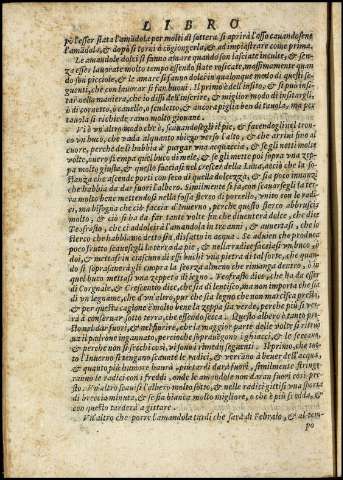 LIBRO
po l'esser stata l'amādola per molti dì sotterra si aprirà l'osso cauandosene
l'amādola, & dopò si torni à cōgiongerla, & ad impiastrare come prima.
Le amandole dolci si fanno amare quando son lasciate inculte, & sen-
za esser lauorate molto tempo essendo state rosicate, massimamente quan
do son picciole, & le amare si fanno dolci in qualunque modo di questi se-
guenti, che con lauorar si fan buoni. Il primo è dell'insito, & si può insi-
tar nella maniera, che io dissi dell'inserire, & miglior modo di insitargli,
è di coronetto, ò canello, o scudetto, & ancora piglia ben di tauola, ma per
tauola si richiede ramo molto giouane.
Vi è vn'altro modo che è, scauandogli il pie, & facendogli nel tron-
co vn buco, che vada alquanto obliquo verso l'alto, & che arriui sino al
cuore, perche dell'habbia à purgar vna acquaccia, & se gli netti molte
volte, ouero si empa quel buco di mele, & se gli mette poi sopra vna zep-
pa molto giusta, & questo facciasi nel crescer della Luna, acciò che la so-
stanza che ascende porti con seco di quella dolcezza, & sia poco innanzi
che habbia da dar fuori l'albero. Similmente si fa, con scauarsegli la ter-
ra molto bene mettendosi nella fossa sterco di porcello, vnito con le radi-
ci, ma bisogna che ciò faccia d'inuerno, perche questo sterco abbruscia
molto, & ciò si ha da far tante volte fin che diuenterà dolce, che dice
Teofrasto, che ci addolcirà l'amandola in tre anni, & auuertasi, che lo
sterco che habbiamo detto sia, disfatto in acqua. Se adiuien che produca
poco frutto scauesegli la terra da pie, & nella radice facciasi vn buco, ò
doi, & mettasi in ciascuno di essi buchi vna pietra di tal sorte, che quan-
do si soprasanerà gli cuopra la scorza almeno che rimanga dentro, ò in
quel buco mettasi vna zeppetta di legno. Teofrasto dice, che ha da esser
di Corgnale, & Crescentio dice, che sia di lentisco, ma non importa che sia
di vn legname, che d'vn'altro, pur che sia legno che non marcisca presto,
& per questa cagione è molto bene la zeppa sia verde, perche più si ver-
rà à conseruar sotto terra, che essendo secca. Questo albero è tanto pre-
sto nel dar fuori, & nel fiorire, che la maggior parte delle volte si ritroua
ua il padrone ingannato, percioche sopraueggono i ghiacci, & le seccano,
& perche non si secchi così, vi sono i rimedij seguenti. Il primo, che tut-
to l'Inuerno si tengano scauate le radici, & verranno à beuer dell'acqua,
& quanto più humore haurà, più tardi darà fuori, similmente strugge-
ranno le radici con i freddi, onde le amandole non daran fuori così pre-
sto. Vn'altro scauasi l'albero molto sotto, & nelle radici gittisi vna sporta
di breccio minuta, & se sia bianca molto migliore, o che è più soda, &
con questo tarderà a gittare.
Vn'altro che porre l'amandola tardi che sarà di Febraio, & al tem-
po